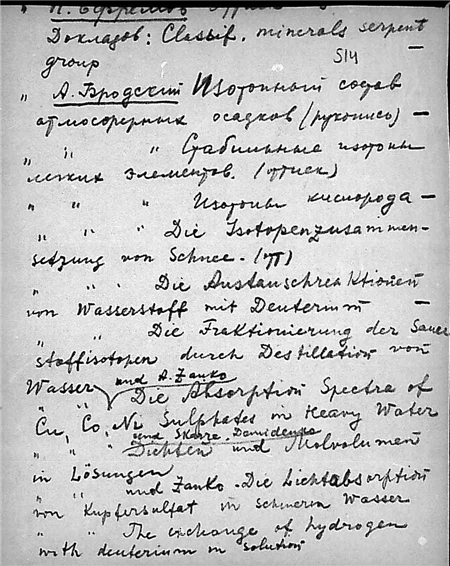 Н. Ефремов
Докладов: Classif. minerals serpent
group 514
" А. Бродский Изотопный состав
атмосферных осадков (рукопись) —
" " " Стабильные изотопы
легких элементов. (оттиск)
" " " Изотопы кислорода —
" " " Die Isotopenzusammen-
setzung von Schnee. - (
" " " Die Austauschreaktionen
von Wasserstoff mit Deuterium —
" " Die Fraktionierung der Sauer
stoffisotopen durch Destillation von
Wasser und A. Zanko
" " Die Absorption Spectra of
Cu, Co, Ni Sulphates in Heavy Water
und Skarre, Demidenko
" " " Dichten und Molvolumen
in Lösungen
" " und Zanko - Die Lichtabsorption
von Kupfersulfat in schweren Wasser
" " The exchange of hydrogen
with deuterium in solution